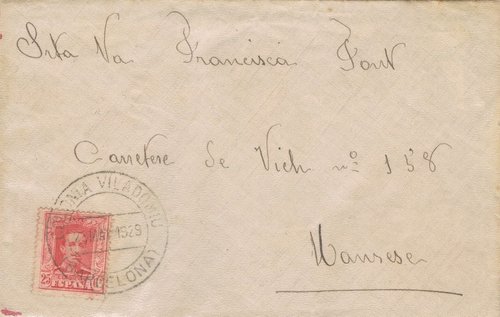 Srta Na Francisca Font
Carretere de Vich nº 158
Manrese
COLONIA VILADOMIU
1929
(BARCELONA)
25
ESPAÑA